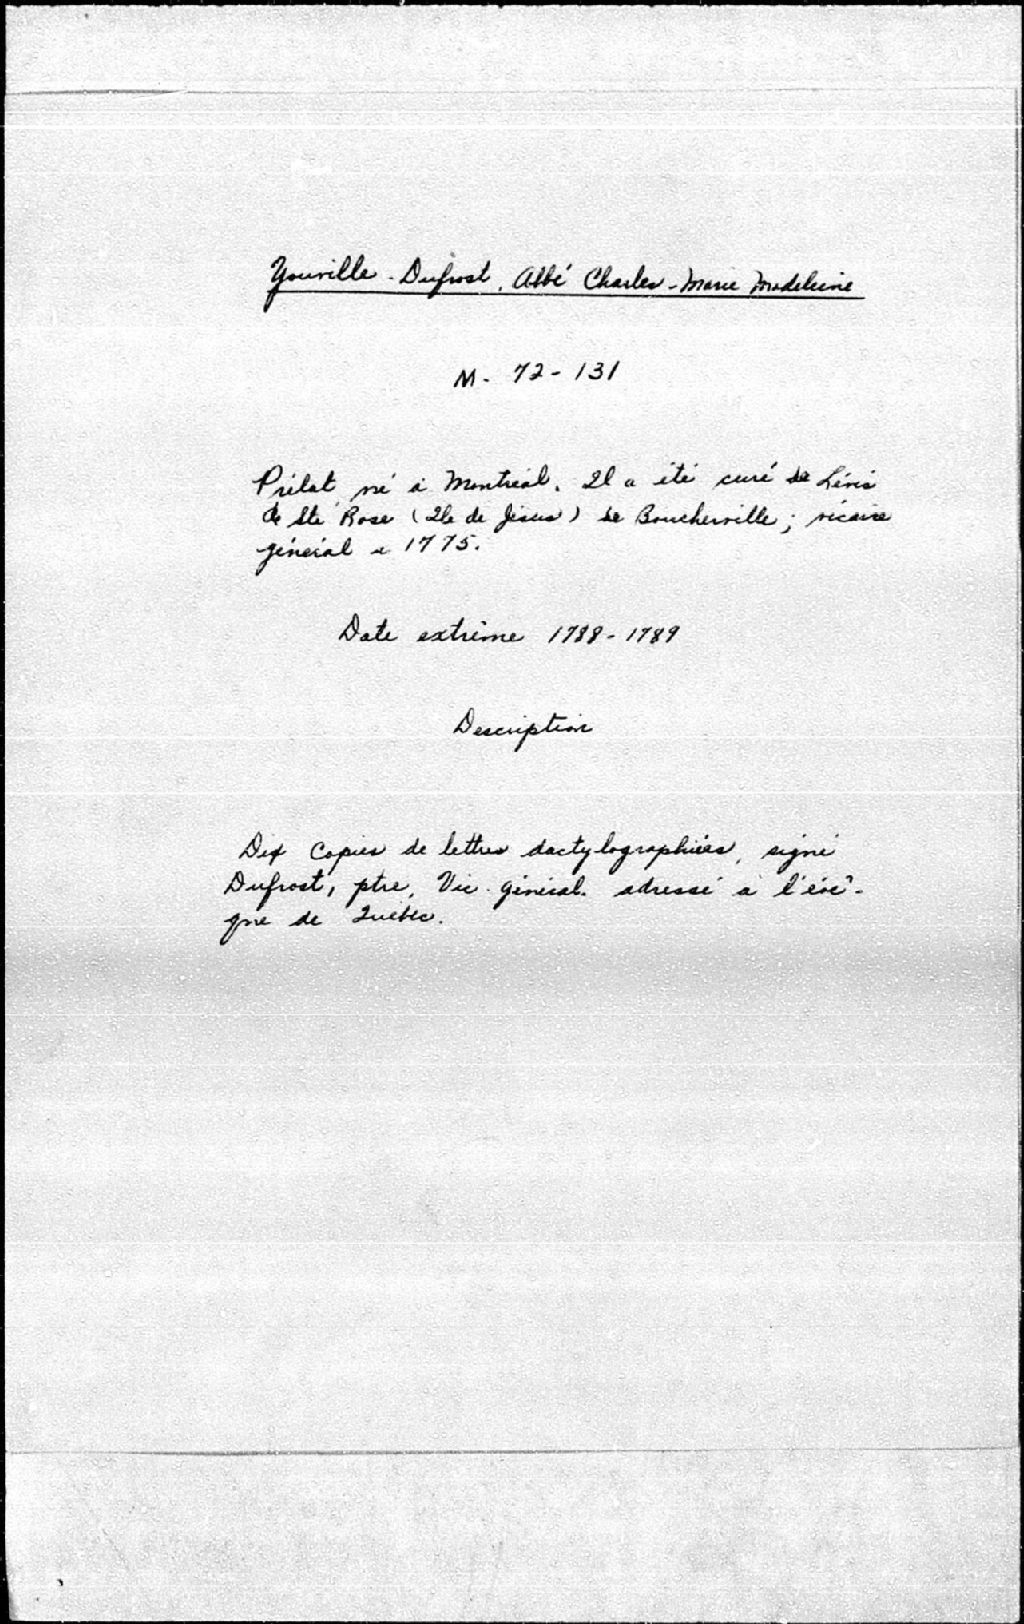 Youville-Dufrost, Abbé Charles-Marie Madeleine
M- 72-131
Prélat né à Montréal. Il a été curé de Lévis
de Ste Rose (Ile de Jésus) de Boucherville; vicaire
général e 1775.
Date extrème 1788-1789
Description
Dix Copies de lettres dactylographiées, signé
Dufrost, ptre, Vic. général. adressé à l'évê-
que de Québec.